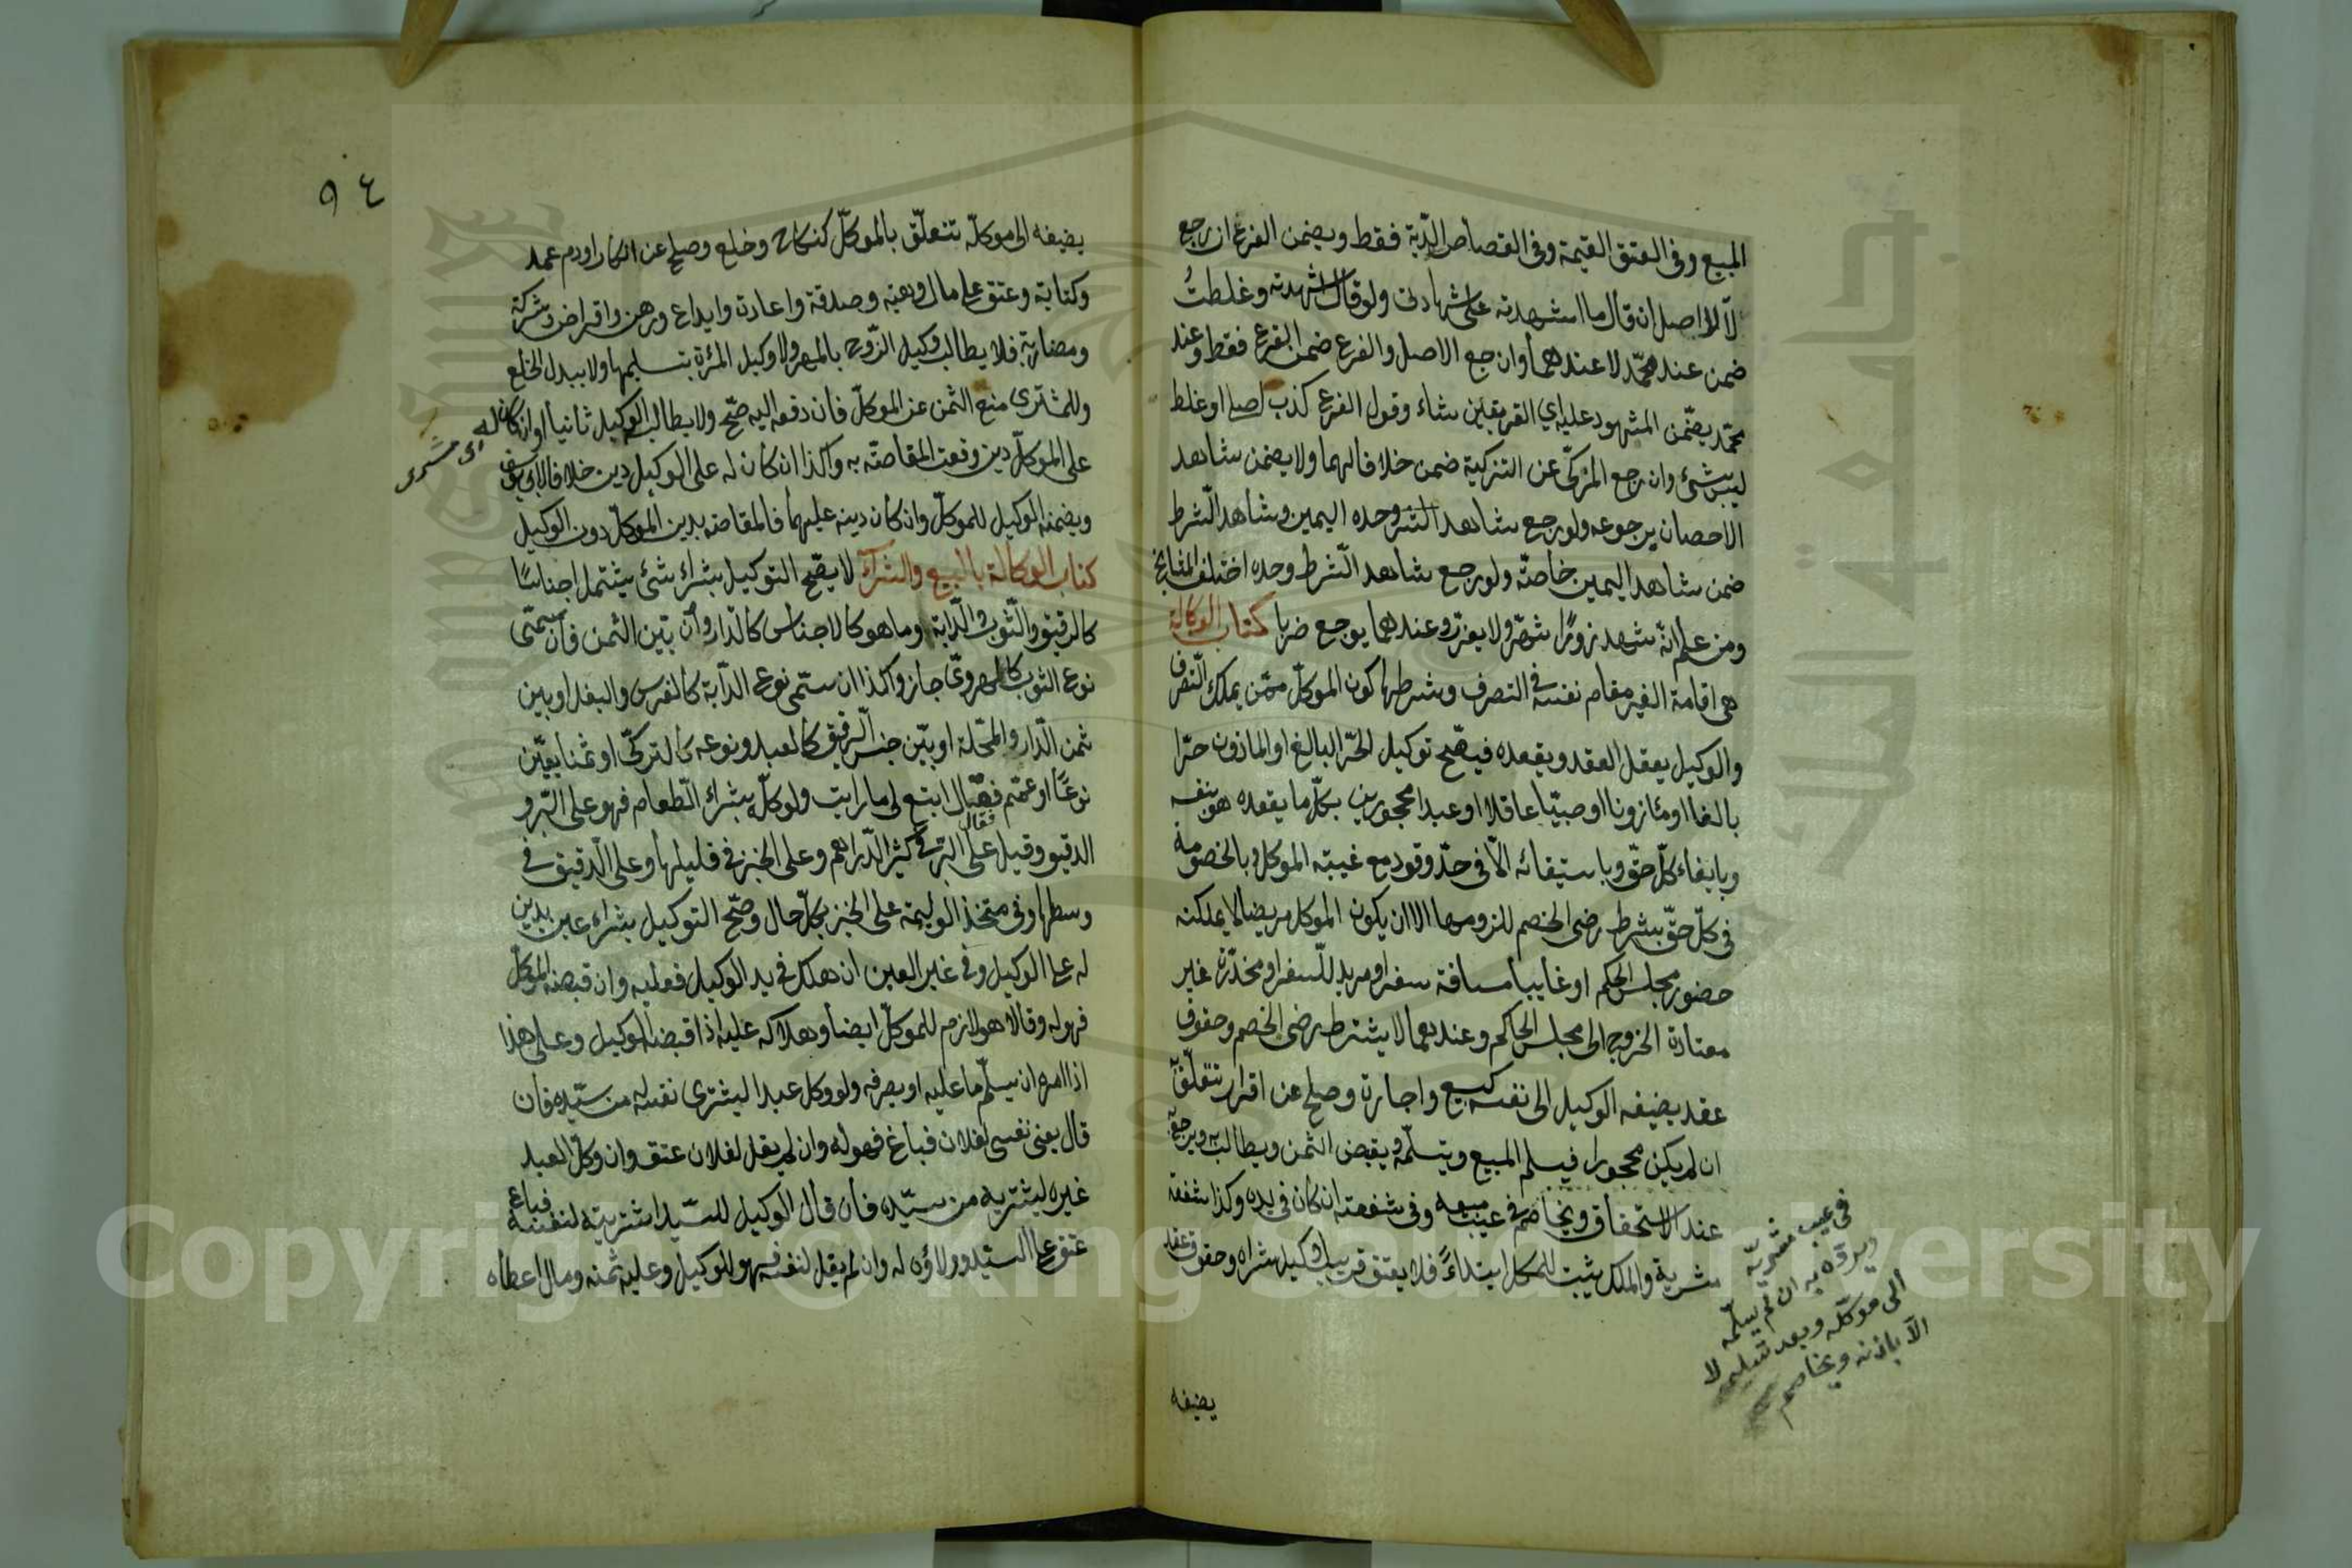 المبيع وفى العتق القيمة وفى القصاص الدّية فقط ويضمن الفرع ان رجع
لا الاصل ان قال ما اشهدته على شهادتى ولو قال اشهدته وغلطتُ
ضمن عند محمّد لا عندهما وان رجع الاصل والفرع ضمن الفرع فقط وعند
محمّد يضمّن المشهود عليه اي الفريقين شاء وقول الفرع كذب اصلى او غلط
ليس بشئ وان رجع المزكّى عن التزكية ضمن خلافا لهما ولا يضمن شاهد
الاحصان برجوعه ولو رجع شاهد اليمين وشاهد الشّرط
ضمن شاهد اليمين خاصّة ولو رجع شاهد الشّرط وحده اختلف المشايخ
ومن علم انّه شهد زورًا شهّر ولا يعزّر وعندهما يوجع ضربا كتاب الوكالة
هى اقامة الغير مقام نفسه فى التصرف وشرطها كون الموكّل ممّن يملك التّصرف
والوكيل يعقل العقد ويقصده فيصحّ توكيل الحرّ البالغ او الماذون حرّا
بالغا او مئازونا او صبيّا عاقلا او عبدا محجورين بكلّ ما يعقده هو بنفسه
وبايفاء كلّ حقّ وباستيفائه الّا فى حدّ وقود مع غيبته الموكل وبالخصومة
فى كلّ حقّ بشرط رضى الخصم للزومها الا ان يكون الموكل مريضا لا يمكنه
حضور مجلس الحكم او غايبا مسافة سفر او مريد للّسفر او مخدّرة غير
معتادة الخروج الى مجلس الحاكم وعندهما لا يشترط رضى الخصم وحقوق
عقد يضيفه الوكيل الى نفسه كبيع واجارة وصلح عن اقرار تتعلّق به
ان لم يكن محجورا فيسلم المبيع ويتسلّمه ويقبض الثمن ويطالب به ويرجع به
عند الاستحقاق ويخاصم فى عيب مبيعه وفى شفعته ان كان فى يده وكذا شفعة
مشريه والملك يثبت للموكل ابتداءً فلا يعتق قريب وكيل شراه وحقوق عقد
فى عيب مشريّه
ويردّه به ان لم يسلّمه
الى موكّله وبعد تسليمه لا
الّا باذنه ويخاصم
يضيفه
٩٤
يضيفه الى موكلّه تتعلّق بالموكلّ كنكاح وخلع وصلح عن انكار او دم عمد
وكتابة وعتق على مال وهبة وصدقة واعادة وايداع ورهن واقراض وشركة
ومضاربة فلا يطالب وكيل الزّوج بالمهر ولا وكيل المرئة بتسليمها ولا ببدل الخلع
وللمشترى منع الثمن عن الموكلّ فان دفعه اليه صحّ ولا يطالب الوكيل ثانيا وان كان له
اى مشترى
على الموكلّ دين وقعت المقاصّة به وكذا ان كان له على الوكيل دين خلافا لابى يوسف
ويضمنه الوكيل للموكلّ وان كان دينه عليهما فالمقاصه بدين الموكلّ دون الوكيل
كتاب الوكالة بالبيع والشرآء لا يصحّ التوكيل بشراء شئ يشتمل اجناسًا
كالرقيق والثّوب والدّابة او ما هو كالاجناس كالدّار وان بيّن الثمن فان سمّى
نوع الثوب كالهروىّ جاز وكذا ان سمّى نوع الدآبة كالفرس والبغل او بين
ثمن الدّار والمحّلة او بيّن جنس الرّقيق كالعبد ونوعه كالتركىّ او ثمنا يعيّن
نوعًا او عمّم فقال ابتع لى ما رايت ولو كلّه بشراء الطّعام فهو على البّر و
فقال
الدقيق وقيل على البّر فى كثير الدّراهم وعلى الخبز فى قليلها وعلى الدّقيق فى
وسطها وفى متخذ الوليمة على الخبز بكلّ حال وصحّ التوكيل بشراء عين بدين
له على الوكيل وفى غير العين ان هلك فى يد الوكيل فعليه وان قبضه الموكلّ
فهو له وقالا هو لازم للموكلّ ايضا وهلاكه عليه اذا قبضه الوكيل وعلى هذا
اذا امره ان يسلّم ما عليه او يصرفه ولو وكل عبدا ليشترى نفسه له من سيّده فان
قال بعنى نفسى لفلان فباع فهو له وان لم يقل لفلان عتق وان وكلّ العبد
غيره ليشتريه من سيّده فان قال الوكيل للسيّد اشتريته لنفسه فباع
عتق على السّيّد وولاؤه له وان لم يقل لنفسه فهو للوكيل وعليه ثمنه وما ل اعطاه
Copyright © King Saud University